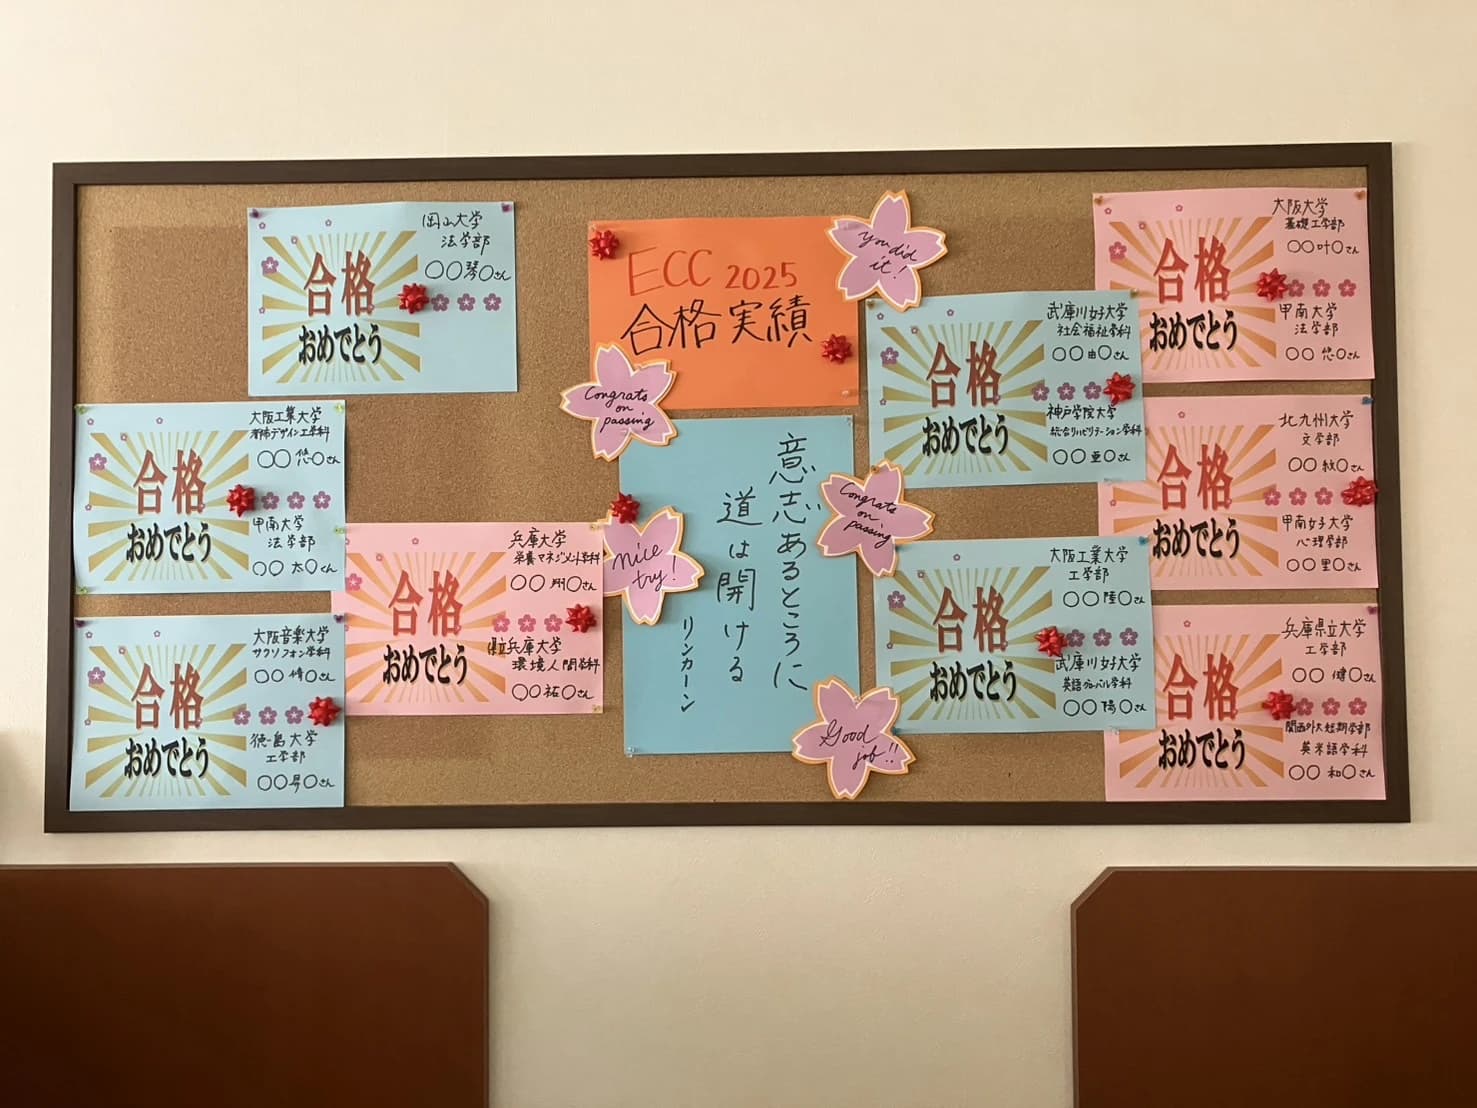 岡山大学
法学部
○○琴○さん
合格
おめでとう
大阪工業大学
都市デザイン工学科
○○悠○さん
甲南大学
法学部
○○太○くん
合格
おめでとう
大阪音楽大学
サクソフォン学科
○○脩○さん
徳島大学
工学部
○○昂○さん
合格
おめでとう
兵庫大学
栄養マネジメント学科
○○ さん
県立兵庫大学
環境人間学科
○○祐○さん
合格
おめでとう
ECC 2025
合格実績
Congrats
on
passing
nice
try!
意志あるところに
道は開ける
リンカーン
You did
it!
Congrats
on
passing
Good
job!!
武庫川女子大学
社会福祉学科
○○由○さん
神戸学院大学
総合リハビリテーション学科
○○亜○さん
合格
おめでとう
大阪工業大学
工学部
○○陸○さん
武庫川女子大学
英語グローバル学科
○○陽○さん
合格
おめでとう
大阪大学
基礎工学部
○○叶○さん
甲南大学
法学部
○○悠○さん
合格
おめでとう
北九州大学
文学部
○○紋○さん
甲南女子大学
心理学部
○○里○さん
合格
おめでとう
兵庫県立大学
工学部
○○健○さん
関西外大短期学部
英米語学科
○○和○さん
合格
おめでとう